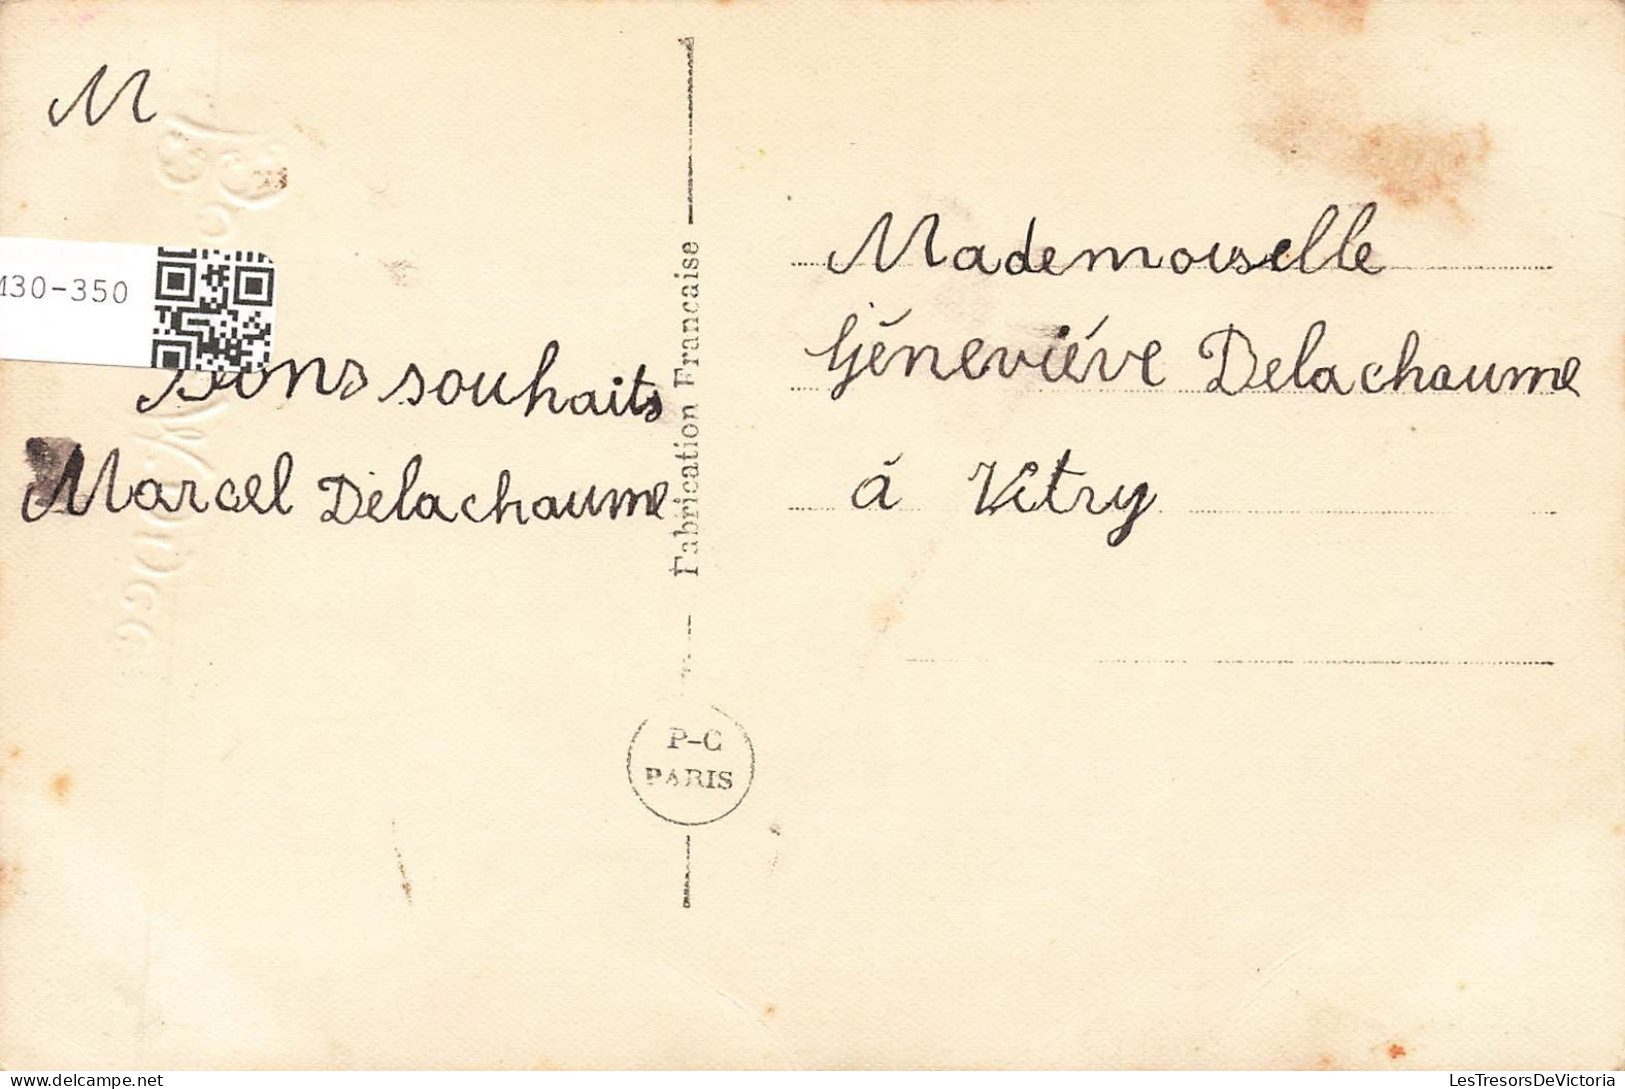 M
M30-350
Bons souhaits
Marcel Delachaume
Fabrication Française
P-C
PARIS
Mademoiselle
Géneviéve Delachaume
à Vitry
LesTresorsDeVictoria